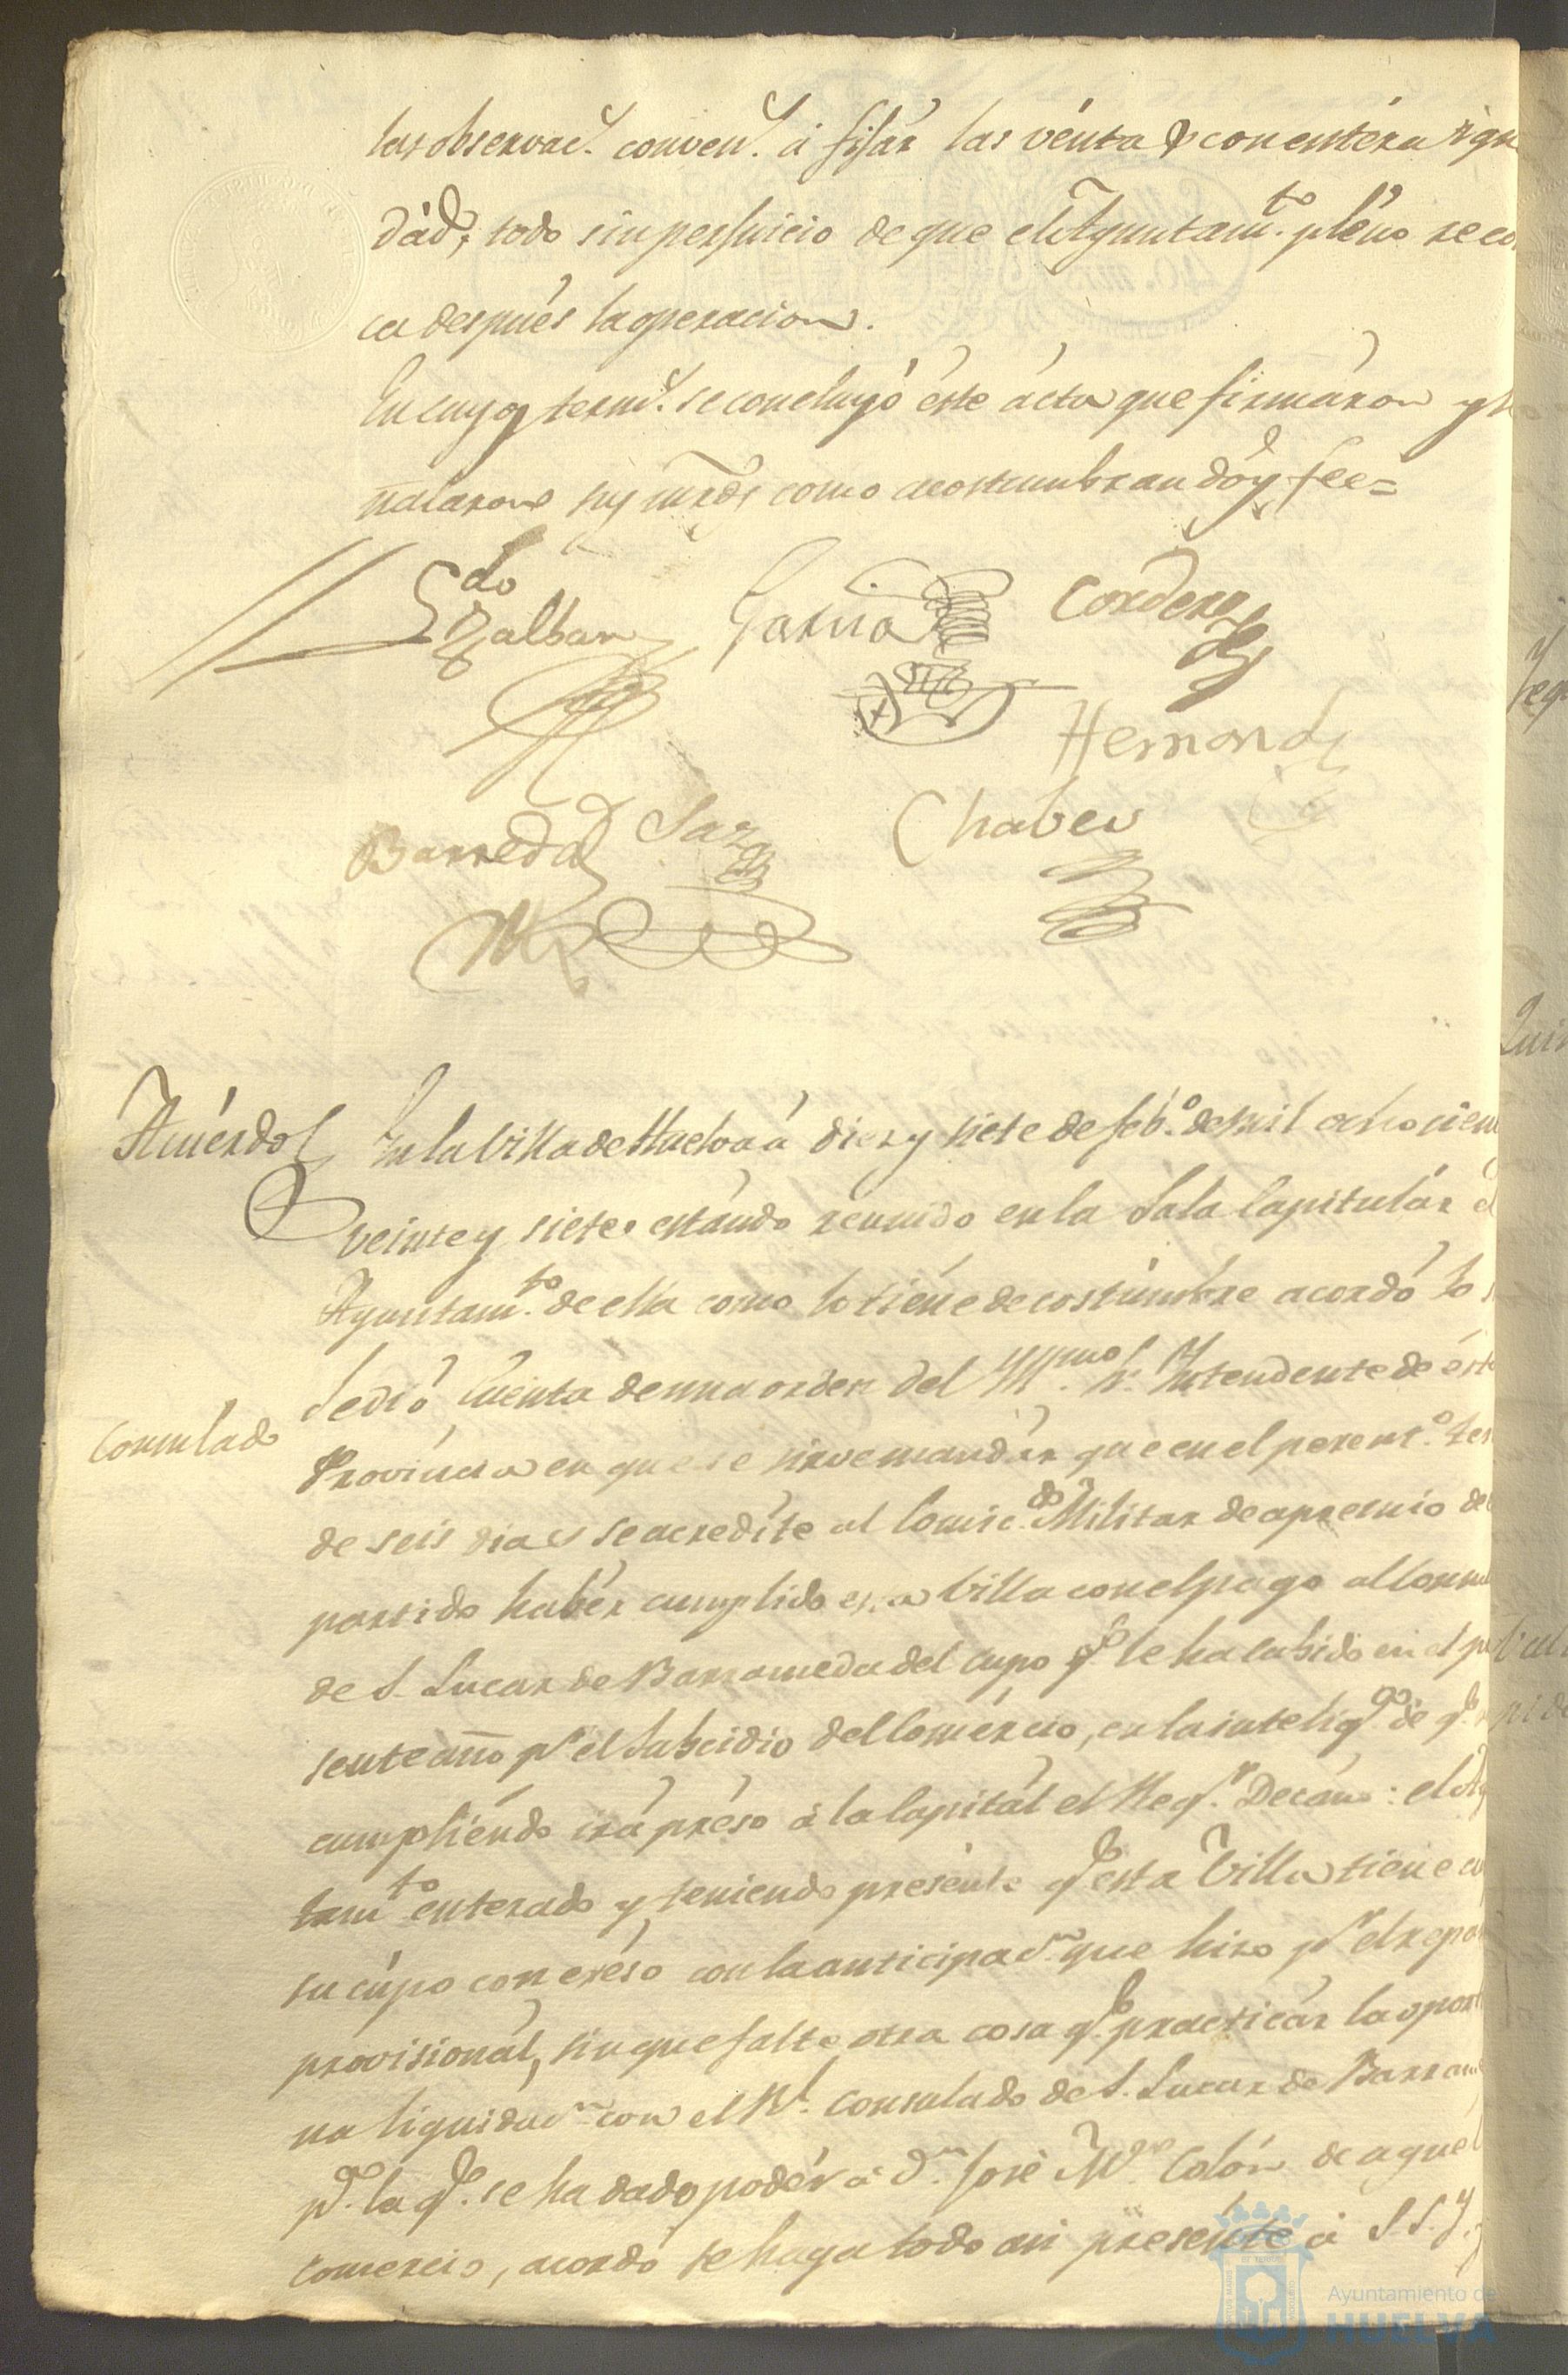 las observac.s conven.s á fijár las vénta y con entéra igua
dád, todo sin perjuicio de que el Ayuntam.to pléno reco
ca despues la operacion.
En cuyos term.s se concluyó éste ácta que firmáron y
ñalaron sus mrds como acostumbran dóy fee=
Ldo Galban
Garcia
Cordero
Hernand
Barreda
Saez
Chabes
Acuérdo
En la Villa de Huelva á diez y siete de feb.o de mil ochocien
veinte y siete estándo reunido en la Sala Capitulár el
Ayuntam.to de ella como lo tiéne de costúmbre acordó lo
Consulado
Se dió Cuénta de una orden del Yll.mo Sr. Yntendente de éste
Provincia en que se sirve mandár que en el perent.o ter
de seis dias se acredite al Comis.do Militar de apremio del
partido habér cumplido esta Villa con el pago al Consul
de S. Lucar de Barrameda del cupo q.e le ha cabido en el pre
sente año p.r el Subcidio del Comércio, en la intelig.a de q.e
cumpliéndo irá préso á la Capitál el Reg.r Decáno: el Ay
tam.to enterado y teniendo presénte q.e esta Villa tiene cu
su cúpo con eréso con la anticipac.n que hizo p.r el repár
provisionál, sin que falte otra cosa q.e practicár la oport
na liquidac.n con el R.l Consulado de S. Lucar de Barram
p.a la q.e se ha dado podér á D.n José M.a Colón de aquel
comercio, acordó se haga todo asi presénte á S.S.Y.
Ayuntamiento de
HUELVA